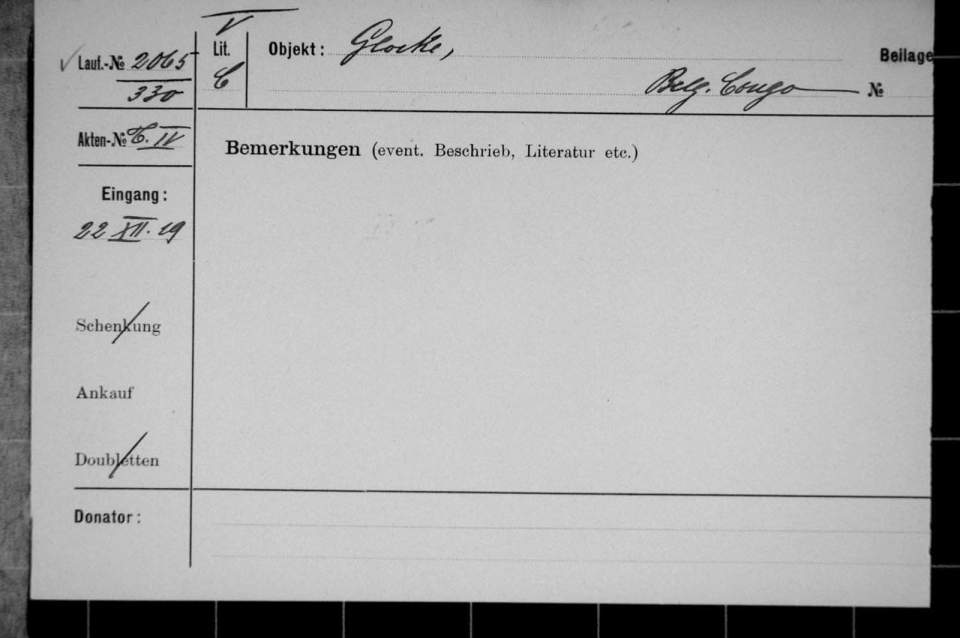 V
✓ Lauf.-№ 2065
330
Lit.
C
Objekt: Glocke,
Belg. Congo
Beilage
№
Akten-№ C. IV
Bemerkungen (event. Beschrieb, Literatur etc.)
Eingang:
22 XII. 19
Schenkung
Ankauf
Doubletten
Donator: